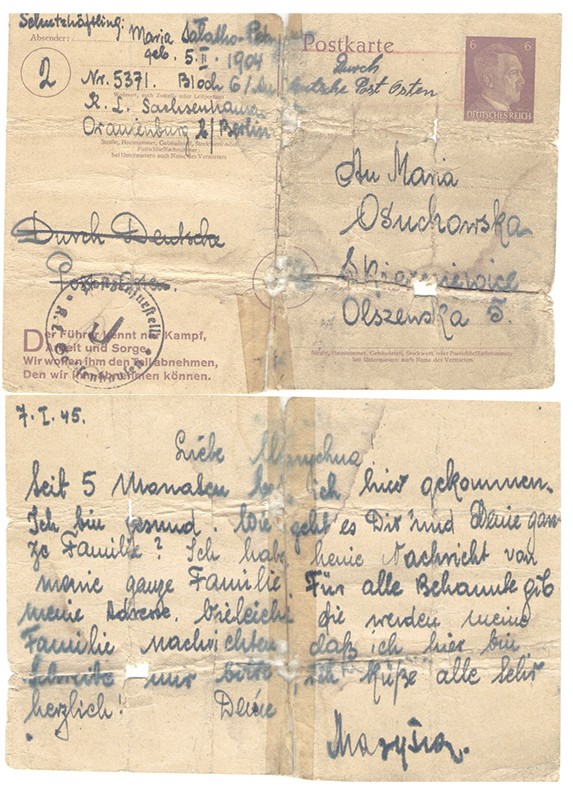 Schutzhäftling:
Absender: Maria
geb. 5. II. 1904
2
Nr. 5371. Block 6/
Wohnort, auch Zustell- oder Leitpostamt
K. L. Sachsenhausen
Oranienburg 2/Berlin
Straße, Hausnummer, Gebäudeteil, Stockwerk oder
Postschließfachnummer;
bei Untermietern auch Name des Vermieters
Durch Deutsche
Post Osten.
Der Führer kennt nur Kampf,
Arbeit und Sorge.
Wir wollen ihm den Teil abnehmen,
Den wir ihm abnehmen können.
Postkarte
Durch
Deutsche Post Osten
6 6
DEUTSCHES REICH
An Maria
Osuchowska
Skierniewice
Olszewska 5.
Straße, Hausnummer, Gebäudeteil, Stockwerk oder Postschließfachnummer;
bei Untermietern auch Name des Vermieters
7. I. 45.
Liebe
Seit 5 Monaten ich hier gekommen.
Ich bin gesund. Wie geht es Dir und Deine gan-
ze Familie? Ich habe keine Nachricht von
meine ganze Familie. Für alle Bekannte gib
meine Adresse. Vieleicht die werden meine
Familie nachrichten, daß ich hier bin
Schreibe mir bitte, ich küße alle sehr
herzlich! Deine
Marysia.